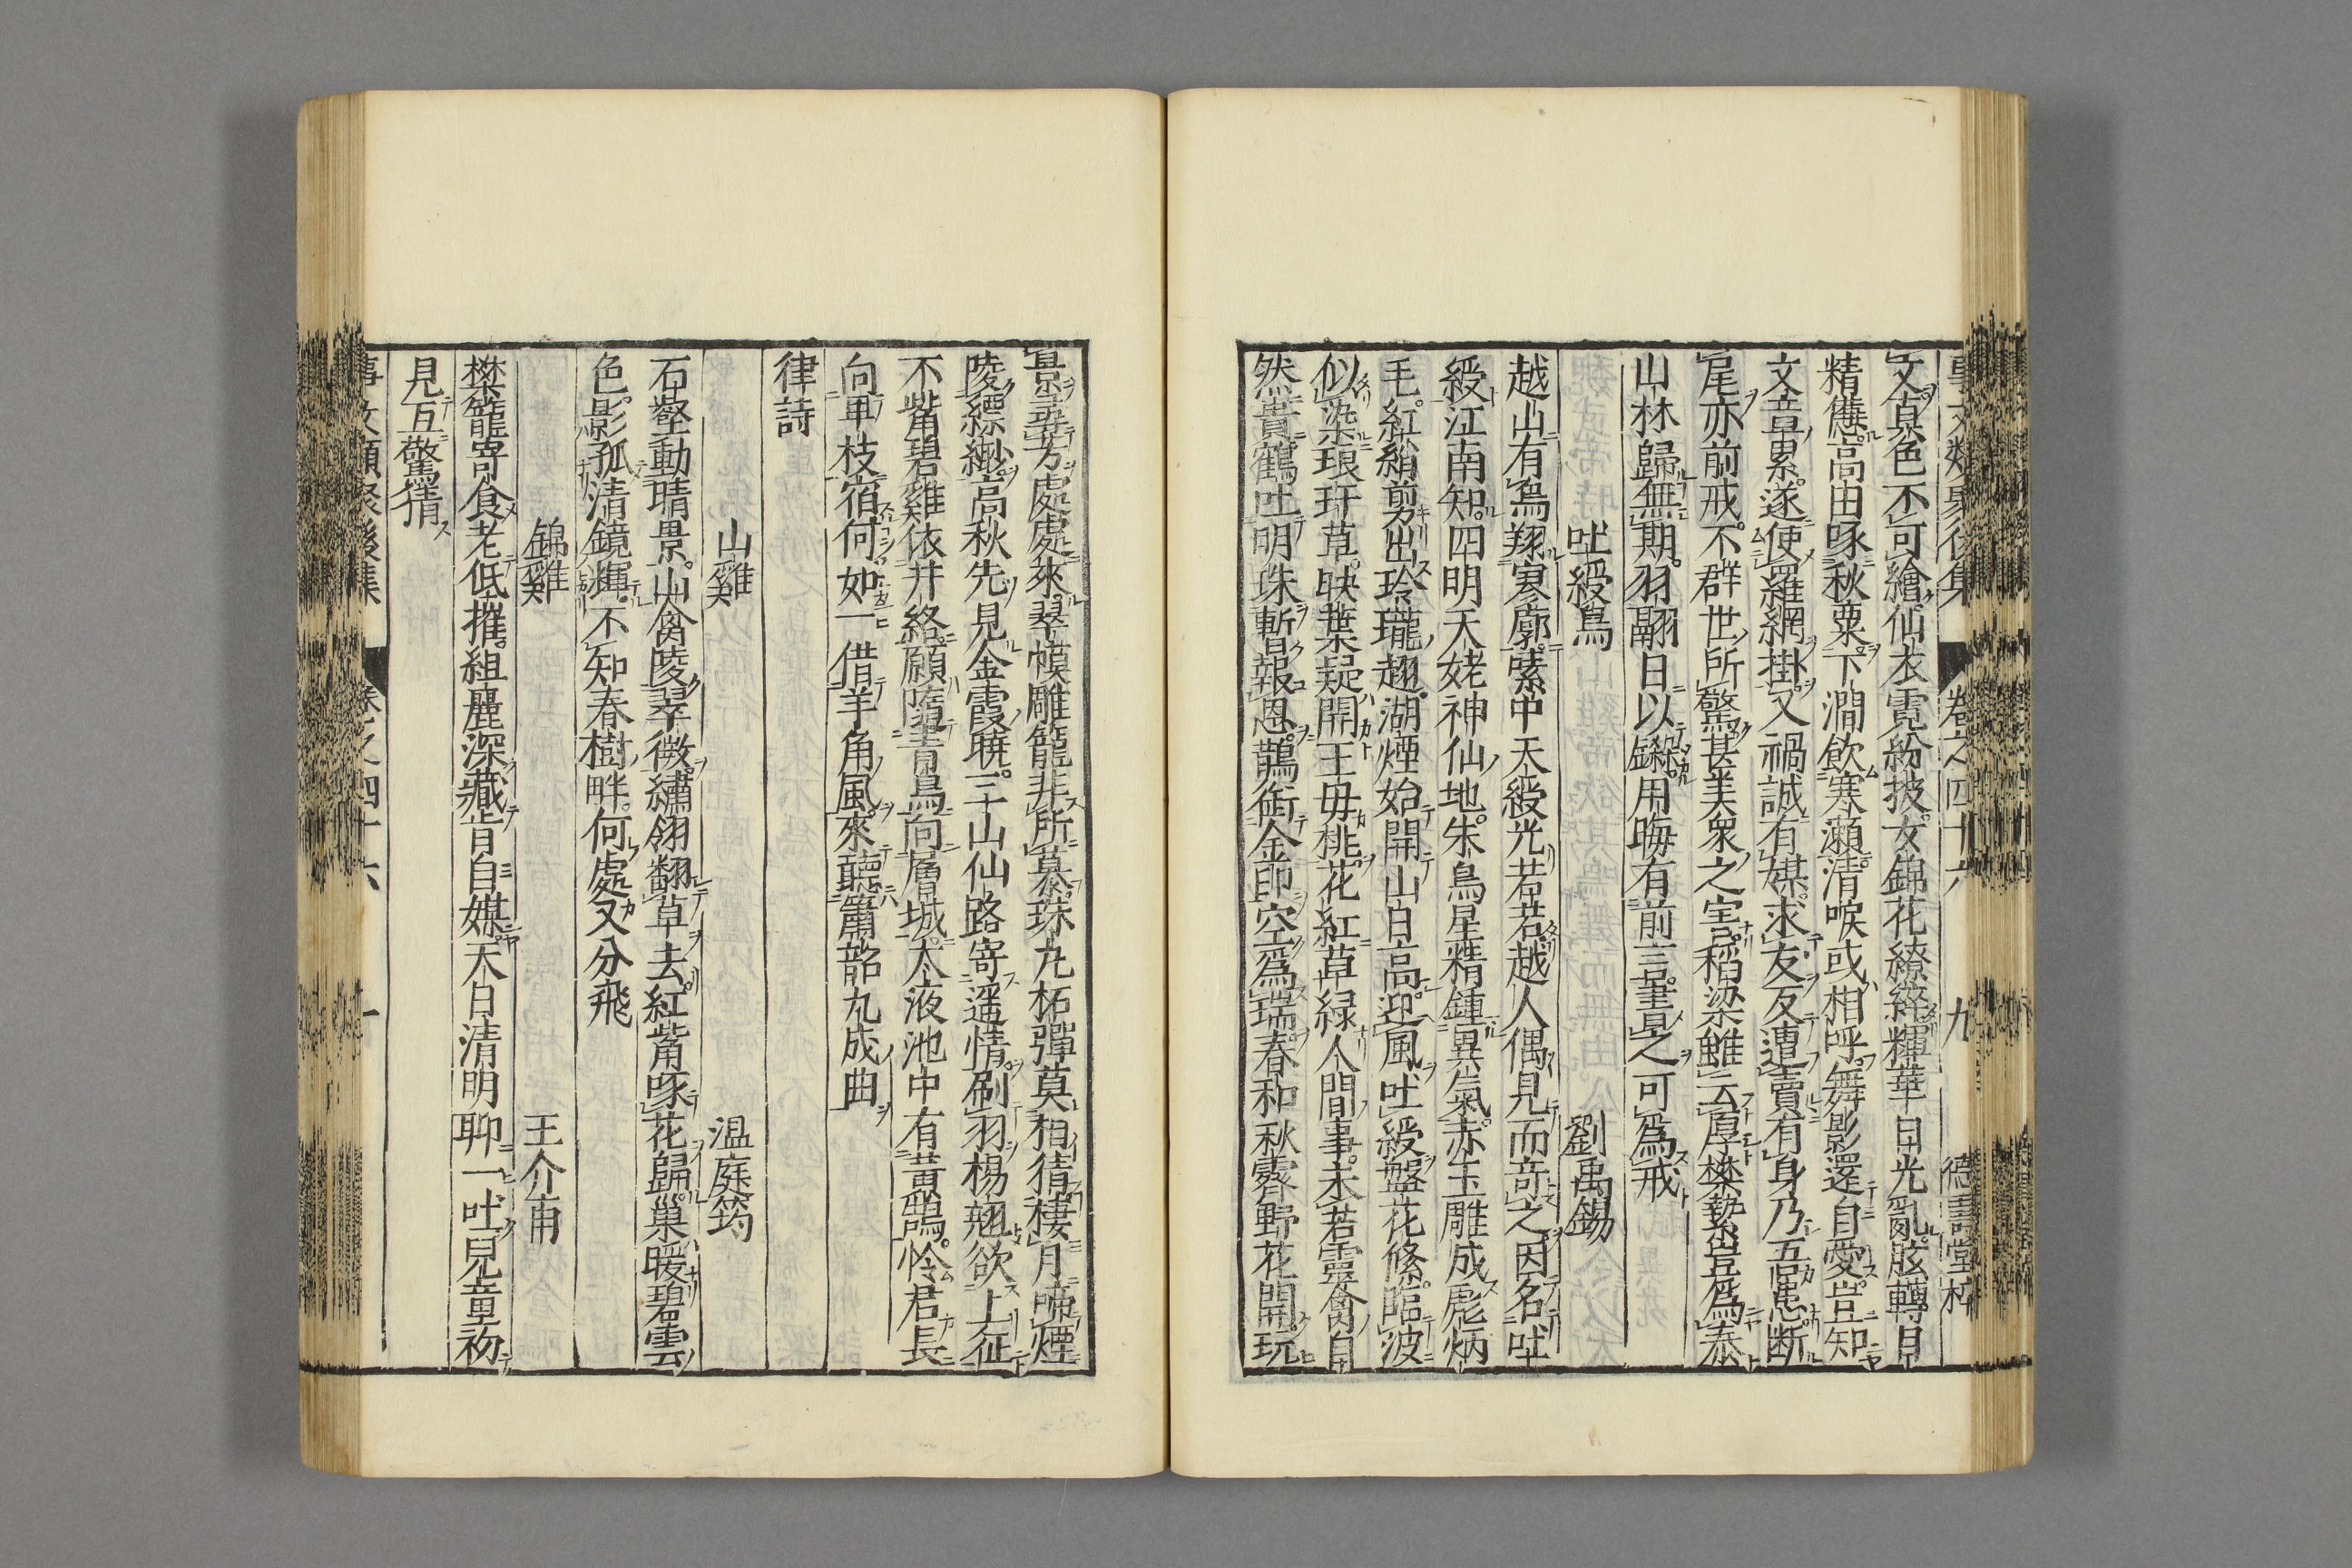 事文類聚後集 卷之四十六 九 德壽堂梓
文眞色不可繪仙衣霓紛披女錦花繚繞輝華日光亂眩轉目
精傳高田啄秋粟下澗飲寒瀬清唳或相呼舞影還自愛豈知
文章累遂使羅網掛又禍誠有媒求友反遭賣有身乃吾患断
尾亦前戒不群世所驚甚美衆之害稻梁雖云厚樊縶豈爲泰
山林歸無期羽翮日以鎩用晦有前言書之可爲戒
吐綬鳥 劉禹錫
越山有鳥翔寥廓嗉中天綬光若若越人偶見而奇之因名吐
綬江南知四明天姥神仙地朱鳥星精鍾異氣赤玉雕成彪炳
毛紅綃剪出玲瓏翅湖煙始開山日高迎風吐綬盤花絛臨波
似染琅玕草映葉疑開王母桃花紅草緑人間事未若靈禽自
然貴鶴吐明珠暫報恩鵲銜金印空爲瑞春和秋霽野花開玩
景尋芳處處來翠幙雕籠非所慕珠丸柘彈莫相猜棲月啼煙
陵縹緲高秋先見金霞曉三山仙路寄遥情刷羽楊翹欲上征
不觜碧雞依井絡願隨青鳥向層城太液池中有黄鵠怜君長
向甲枝宿何如一借羊角風來聽簫韶九成曲
律詩
山雞 温庭筠
石壑動晴景山禽陵翠微繡翎翻草去紅觜啄花歸巢暖碧雲
色影孤清鏡輝不知春樹畔何處又分飛
錦雞 王介甫
樊籠寄食老低摧組麗深藏肯自媒天日清明聊一吐兒童初
見互驚猜
事文類聚後集 卷之四十六 十